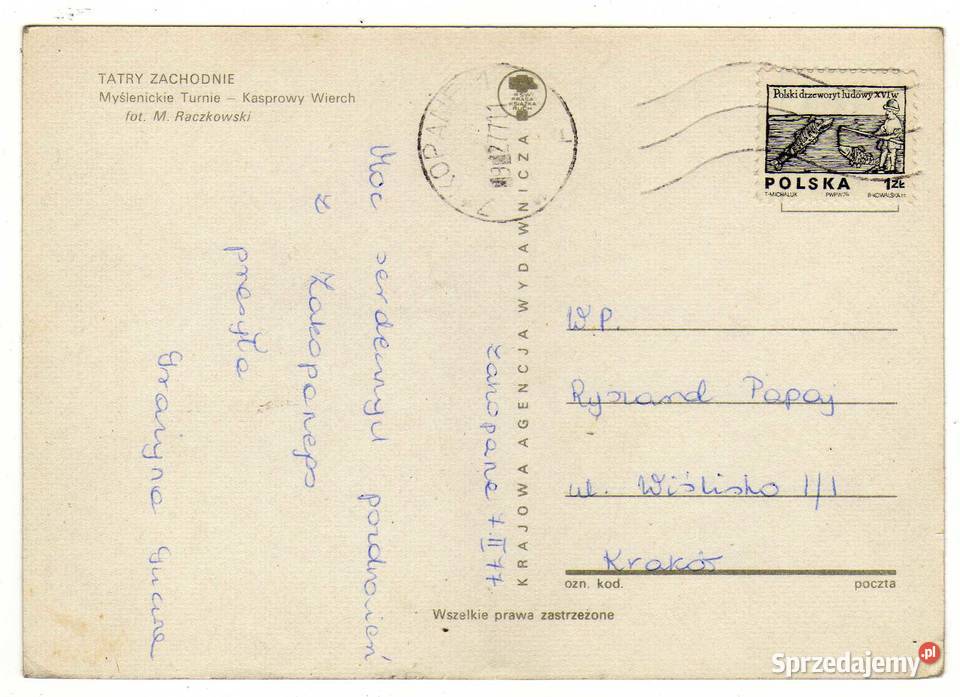 TATRY ZACHODNIE
Myślenickie Turnie – Kasprowy Wierch
fot. M. Raczkowski
Moc serdecznych pozdrowień
z Zakopanego
przesyła
Grażyna
Zakopane 7.II 77
KRAJOWA AGENCJA WYDAWNICZA
RSW
PRASA
KSIĄŻKA
RUCH
ZAKOPANE 1
Polski drzeworyt ludowy XVI w
POLSKA 1ZŁ
T·MICHALUK PWPW74
W.P.
Ryszard Papaj
ul. Wiślisko 1/1
Kraków
ozn. kod. poczta
Wszelkie prawa zastrzeżone
Sprzedajemy.pl